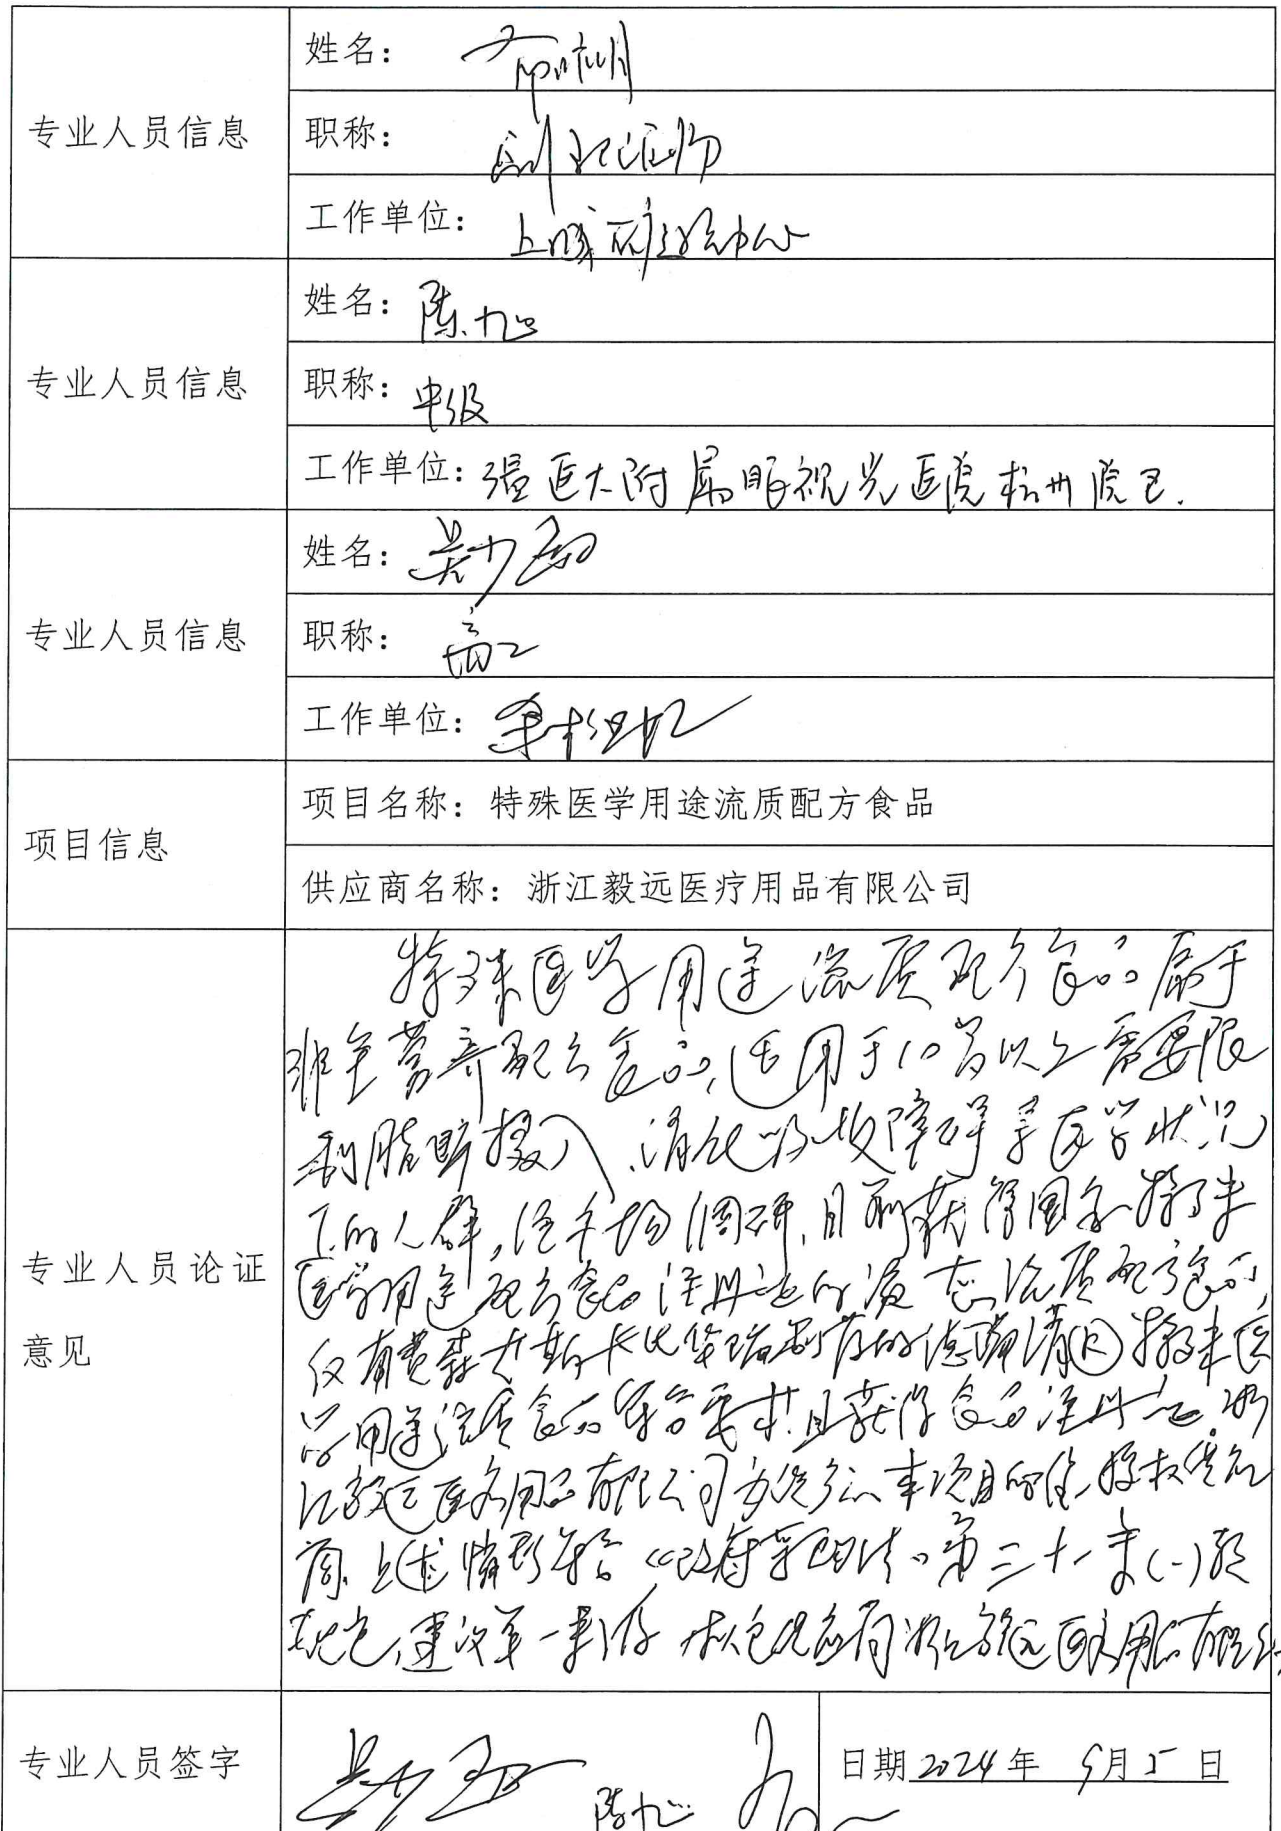 专业人员信息
姓名：
职称：
工作单位：
专业人员信息
姓名：陈旭
职称：中级
工作单位：温医大附属眼视光医院杭州院区.
专业人员信息
姓名：吴
职称：高工
工作单位：
项目信息
项目名称：特殊医学用途流质配方食品
供应商名称：浙江毅远医疗用品有限公司
专业人员论证
意见
特殊医学用途流质配方食品属于
非全营养配方食品，适用于10岁以上需要限
制脂肪摄入、消化吸收障碍等医学状况
下的人群，经市场调研，目前获得国家特殊
医学用途配方食品注册证的液态流质配方食品，
仅有费森尤斯卡比华瑞制药的 特殊医
学用途流质食品符合要求，且获得食品注册证。浙
江毅远医疗用品有限公司为 本项目的唯一授权供应
商，上述情形符合《政府采购法》第三十一条(一)款
规定，建议单一来源采购 供应商浙江毅远医疗用品有限公
专业人员签字
吴
陈旭
日期 2024 年 9月 5 日